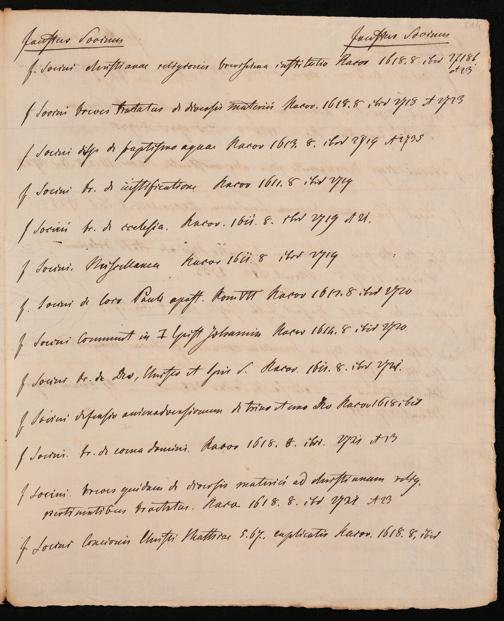 Faustus Socinus Faustus Socinus
f. Socini Christianae religionis brevissima institutio Racov 1618. 8. ibid 2718
et 23
f Socini breves tractatus de diversis materiis Racov. 1618. 8 ibid 2718 et 2723
f Socini disp. de baptismo aquae Racov 1613. 8. ibid 2719 et 2735
f Socini tr. de iustificatione Racov 1611. 8 ibid 2719
f Socini tr. de ecclesia. Racov. 1611. 8. ibid 2719 et 21.
f Socini. Miscellanea Racov 1611. 8 ibid 2719
f. Socini de loco Pauli apost. Rom VII Racov 1612. 8. ibid 2720
f. Socini Comment in I Epist Johannis Racov 1614. 8 ibid 2720
f Socini tr. de Deo, Christo et Spir S. Racov. 1611. 8. ibid 2721.
f Socini defensio animadversionum de trino et uno Deo Racov 1618 ibid
f Socini. tr. de coena domini. Racov 1618. 8. ibi. 2721 et 23
f Socini. breves quidem de diversis materiis ad christianam relig.
pertinentibus tractatus. Raco. 1618. 8. ibid 2721 et 23
f Socini Concionis Christi Matthaei 5. 6. 7. explicatio Racov. 1618. 8, ibid